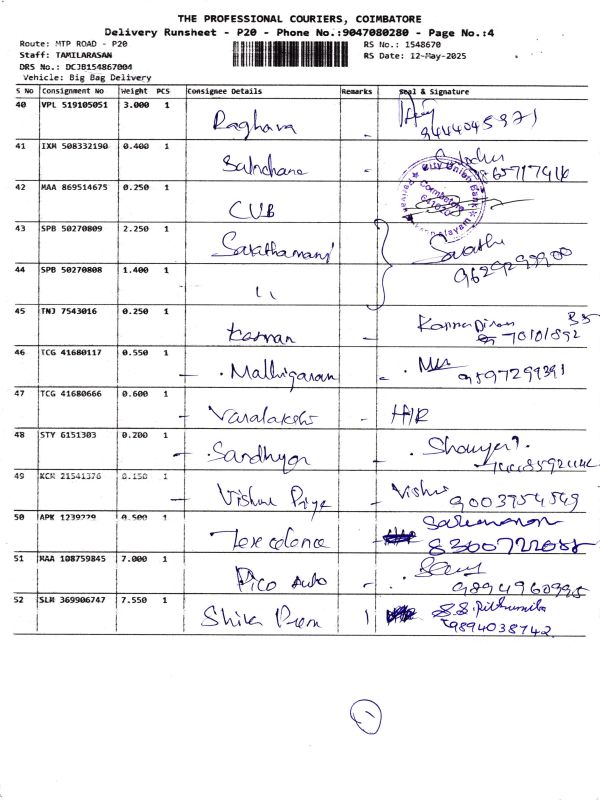 THE PROFESSIONAL COURIERS, COIMBATORE
Delivery Runsheet - P20 - Phone No.:9047080280 - Page No.:4
Route: MTP ROAD - P20 RS No.: 1548670
Staff: TAMILARASAN RS Date: 12-May-2025
DRS No.: DCJB154867004
Vehicle: Big Bag Delivery
S No Consignment No Weight PCS Consignee Details Remarks Seal & Signature
40 VPL 519105051 3.000 1
Raghava - 9444045971
41 IXM 508332190 0.400 1
Sulochana
42 MAA 869514675 0.250 1
CUB City Union Bank Coimbatore
43 SPB 50270809 2.250 1
Sakthamani Sakthi
9629299900
44 SPB 50270808 1.400 1
"
45 TNJ 7543016 0.250 1
Kannan -
46 TCG 41680117 0.550 1
Mathigaran - 9597299391
47 TCG 41680666 0.600 1
- Varalakshi - H/R
48 STY 6151303 0.200 1
- Sandhya -
49 KCH 21541376 0.150 1
- Vishnu Priya - Vishnu
9003954549
50 APK 1239229 0.500 1
Texcelence
51 MAA 108759845 7.000 1
Pico Auto - 9894960995
52 SLM 369906747 7.550 1
Shika Prem
9894038742